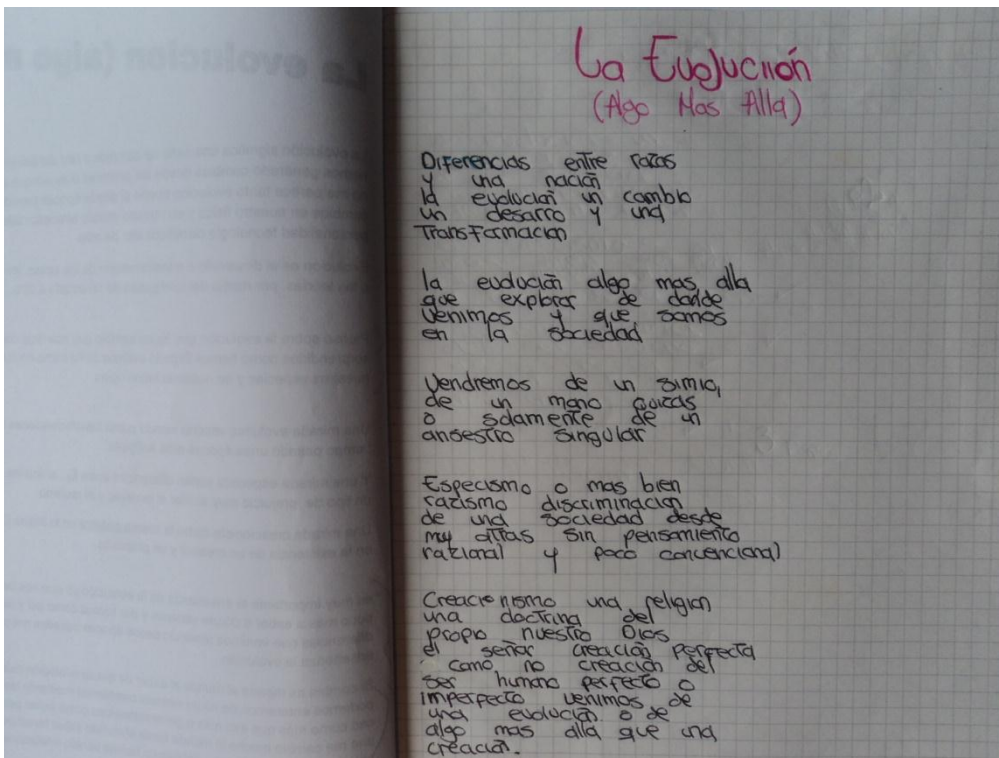 La Evolución
(Algo Mas Alla)
Diferencias entre razas
y una nación
la evolución un cambio
un desarro y una
Transformacion
la evolución algo mas alla
que explorar de donde
venimos y que somos
en la sociedad
Vendremos de un simio,
de un mono quizas
o solamente de un
ansestro singular
Especismo o mas bien
razismo discriminacion
de una sociedad desde
muy attras sin pensamiento
razional y poco concencional
Creacionismo una religion
una doctrina del
propio nuestro Dios
el señor creación perfecta
como no creación del
ser humano perfecto o
imperfecto venimos de
una evolución o de
algo mas alla que una
creación.